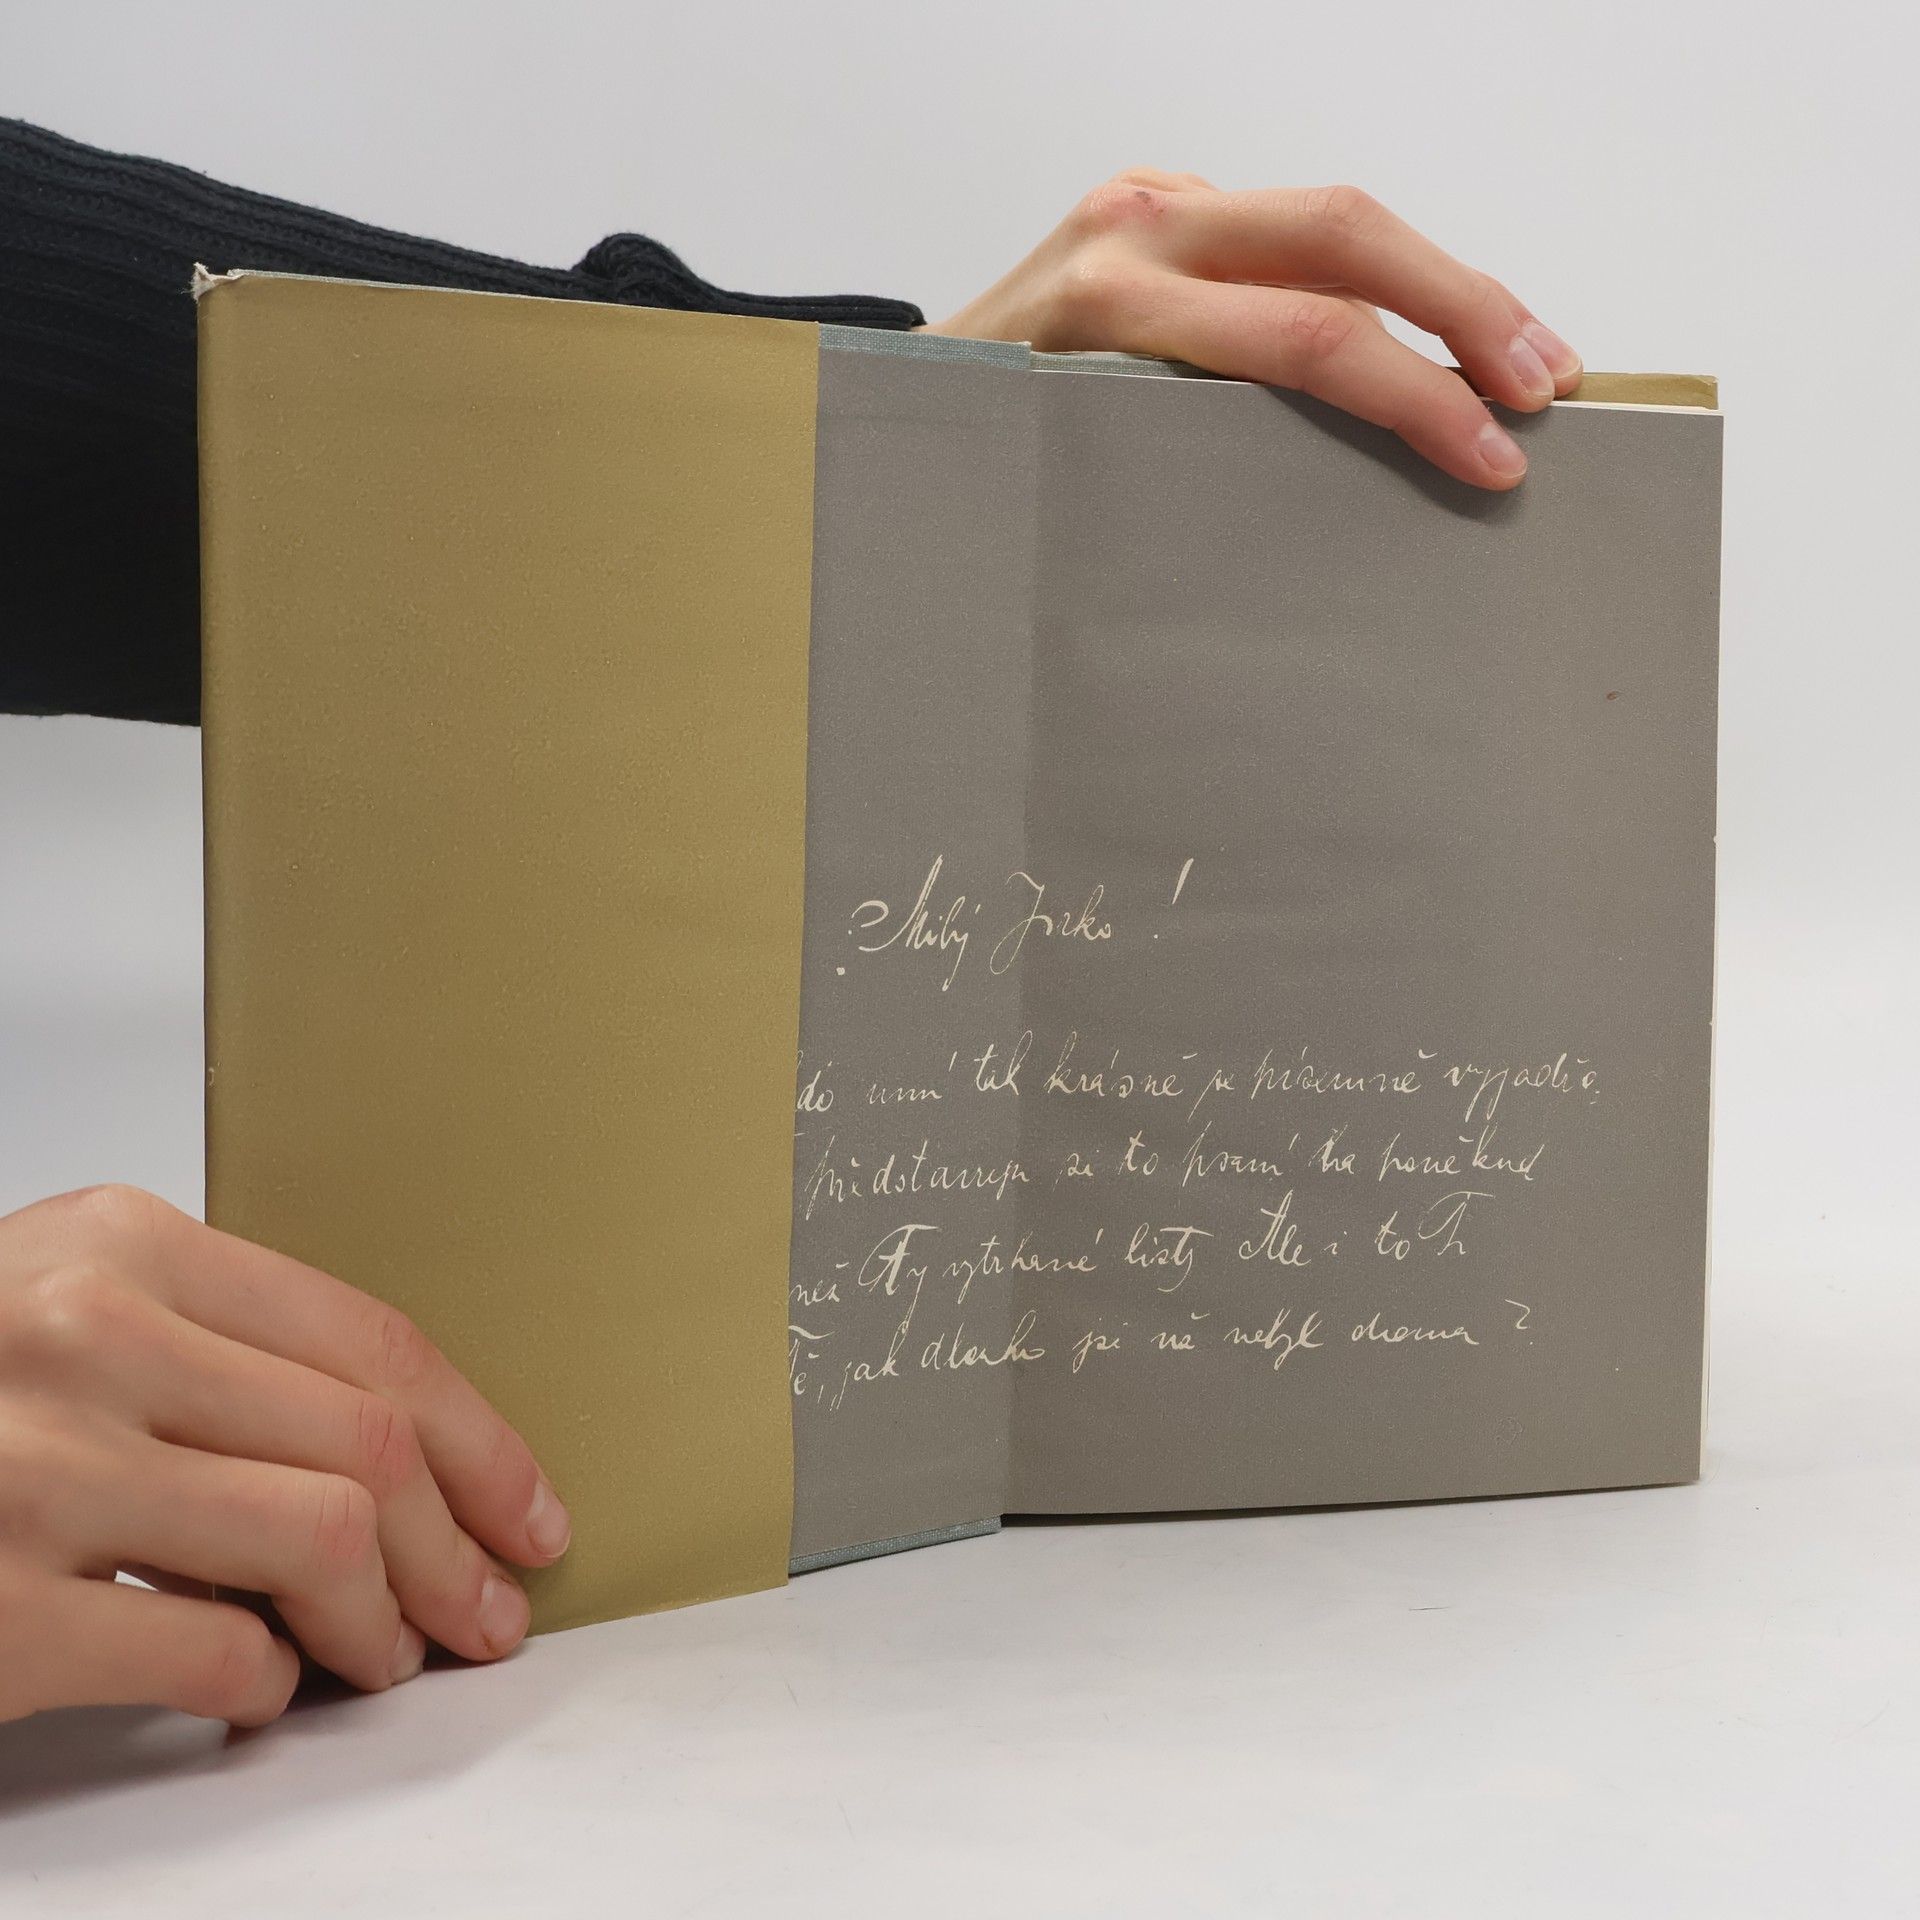 Milý Jurko!
do umí tak krásně se písemně vyjadřo
představuju si to psaní ha poněkud
než Ty vytrhané listy Ale i to T
Tě, jak dlouho jsi už nebyl doma?